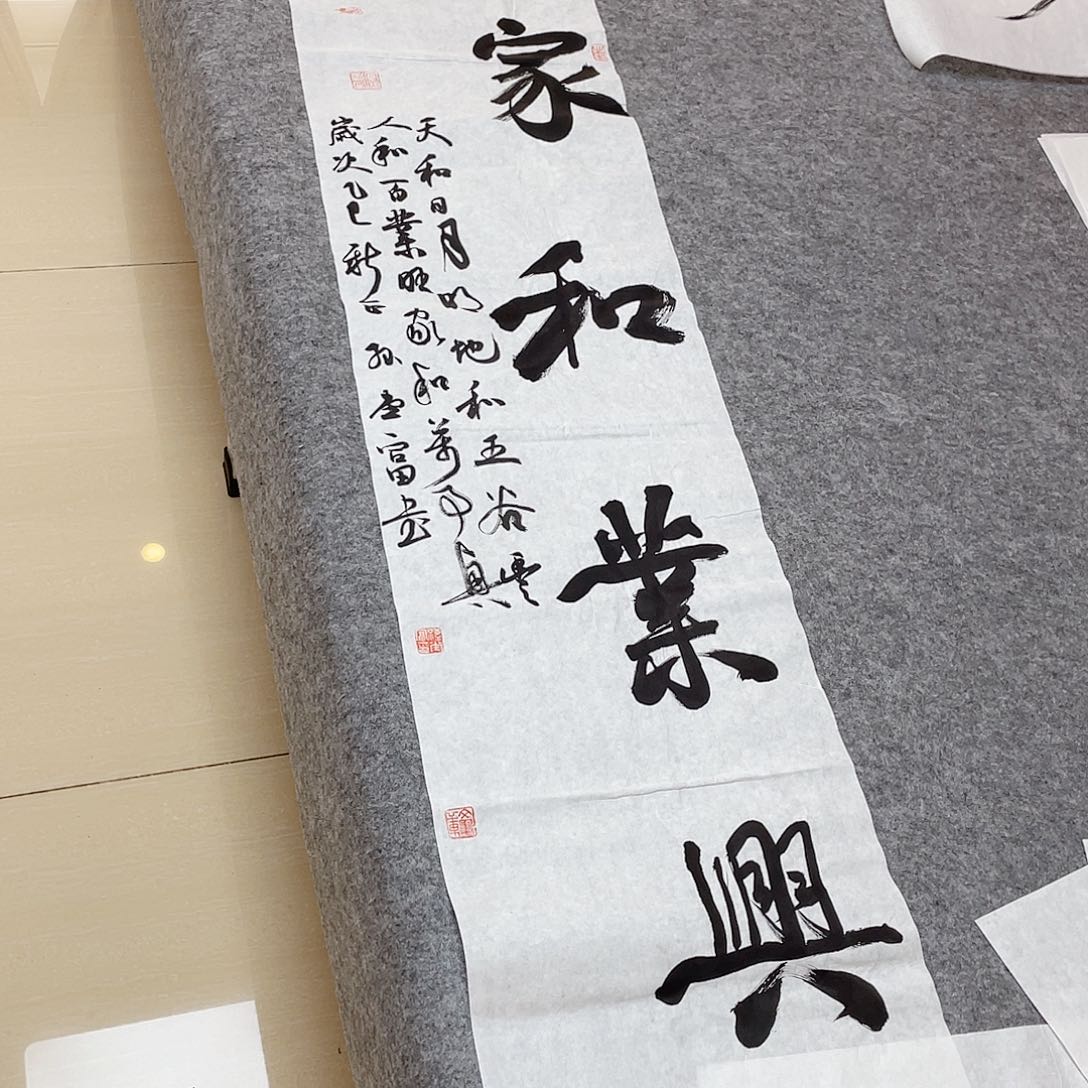 家和業興
天和日月明地和五谷豐
人和百業旺家和萬事興
歲次乙巳新正孫 富書